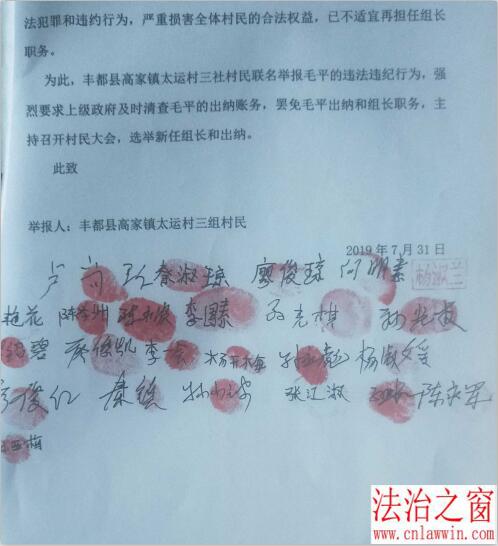 法犯罪和违约行为，严重损害全体村民的合法权益，已不适宜再担任组长
职务。
为此，丰都县高家镇太运村三社村民联名举报毛平的违法违纪行为，强
烈要求上级政府及时清查毛平的出纳账务，罢免毛平出纳和组长职务，主
持召开村民大会，选举新任组长和出纳。
此致
举报人：丰都县高家镇太运村三组村民
2019年7月31日
秦淑琼 廖俊琼 杨淑兰
李国臻 孙克棋
李 杨淑媛
俊红 秦 张江淑 陈永军
法治之窗
www.cnlawwin.com